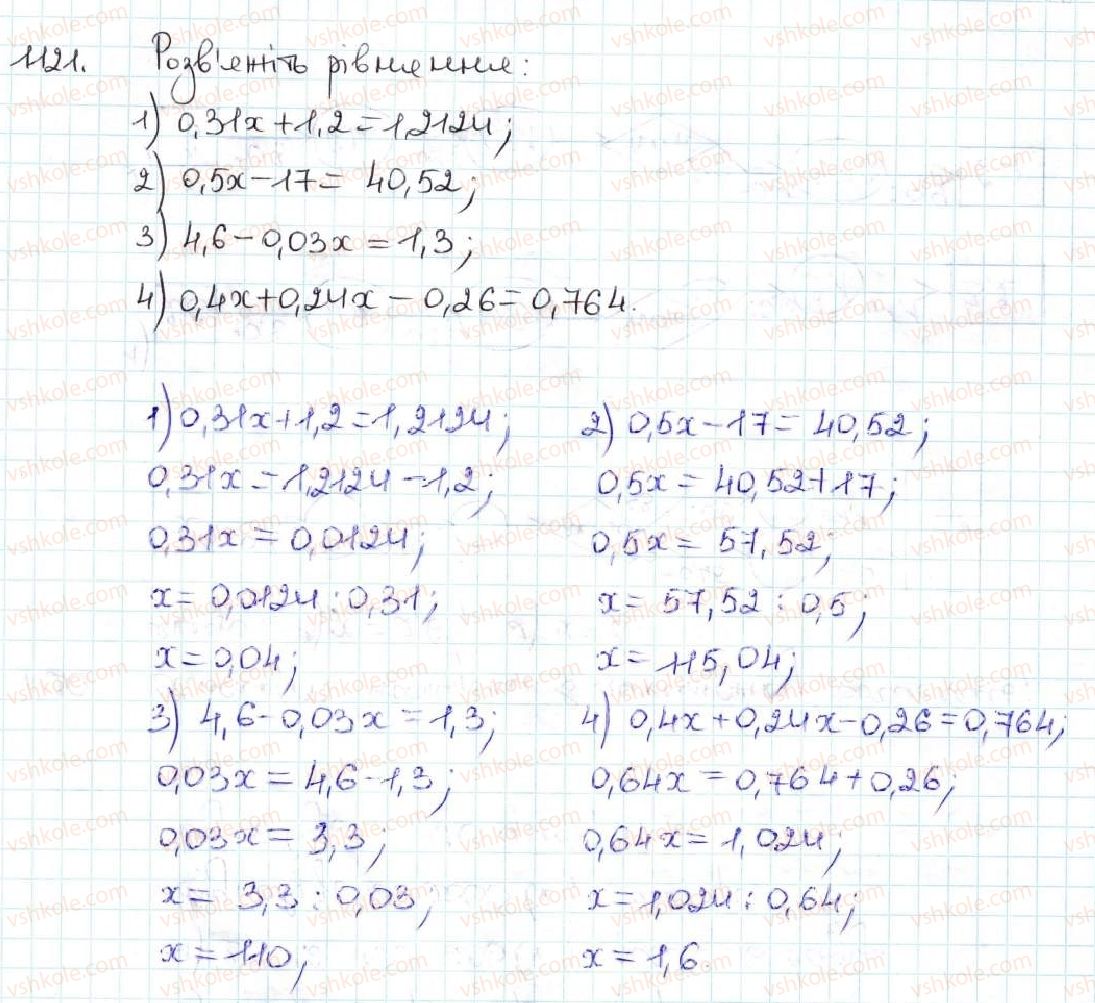 1121. Розв'яжіть рівняння:
1) 0,31x+1,2=1,2124;
2) 0,5x-17= 40,52;
3) 4,6-0,03x=1,3;
4) 0,4x+0,24x-0,26=0,764.
1) 0,31x+1,2=1,2124;
0,31x=1,2124-1,2;
0,31x=0,0124;
x=0,0124:0,31;
x=0,04;
2) 0,5x-17=40,52;
0,5x=40,52+17;
0,5x=57,52;
x=57,52:0,5;
x=115,04;
3) 4,6-0,03x=1,3;
0,03x=4,6-1,3;
0,03x=3,3;
x=3,3:0,03;
x=110;
4) 0,4x+0,24x-0,26=0,764;
0,64x=0,764+0,26;
0,64x=1,024;
x=1,024:0,64;
x=1,6.
vshkole.com